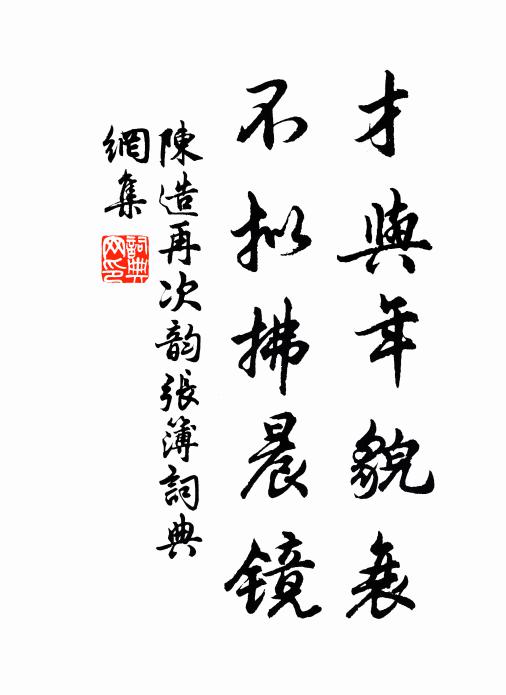 才與年貌衰
不拟拂晨镜
陳造再次韵張簿詞典
網集
詞典
网印